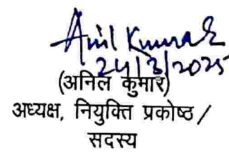 Anil Kumar
24/3/2025
(अनिल कुमार)
अध्यक्ष, नियुक्ति प्रकोष्ठ /
सदस्य